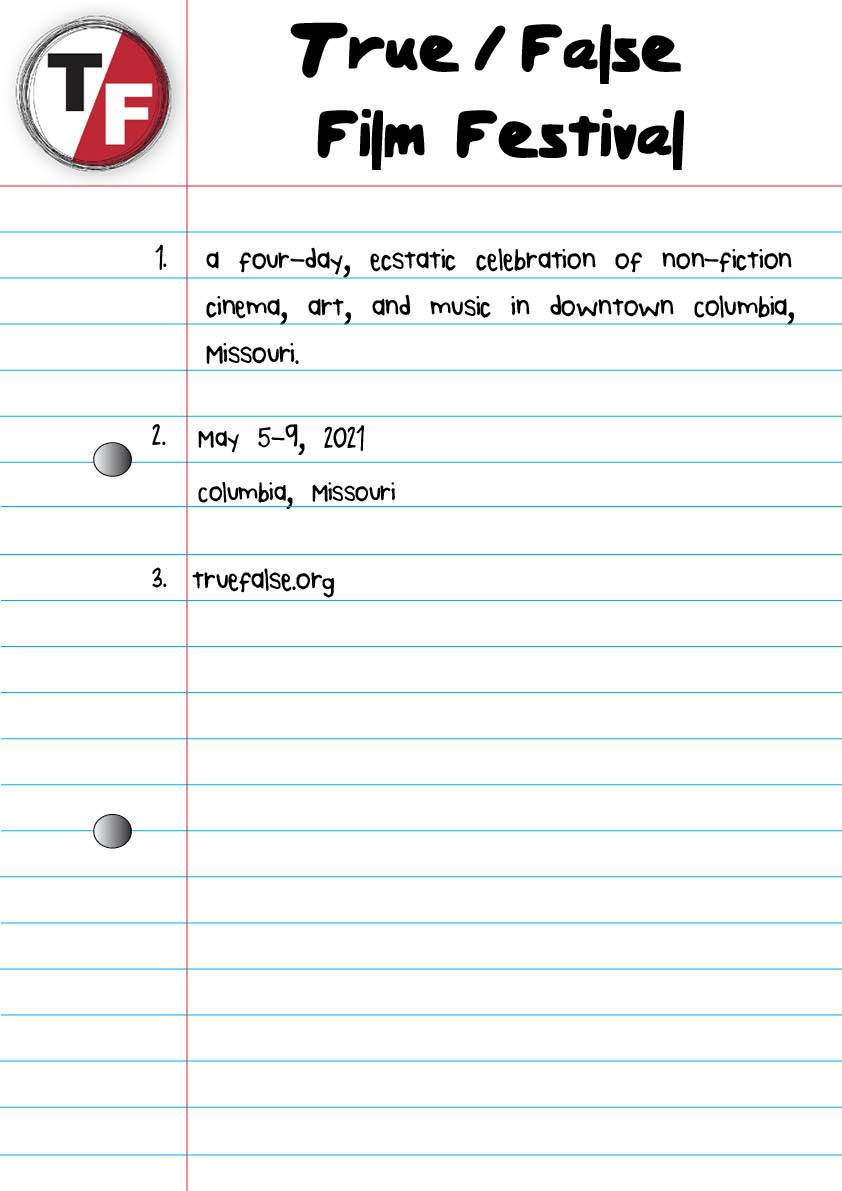 T/F
True / False
Film Festival
1. a four-day, ecstatic celebration of non-fiction
cinema, art, and music in downtown columbia,
Missouri.
2. May 5-9, 2021
columbia, Missouri
3. truefalse.org